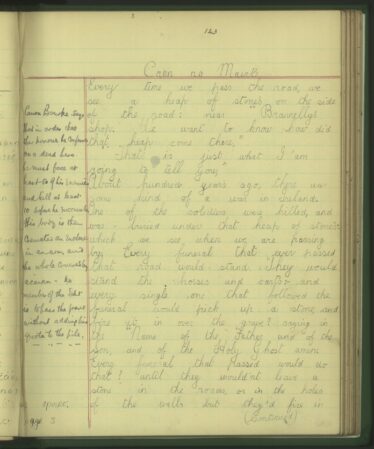 123
Carn na Marbh
Every time we pass the road, we
see a heap of stones on the side
of the road: near "Brannelly's
shop. We want to know how did
that heap come there."
"That is just what I am
going to tell you,"
About hundred years ago, there was
some kind of a war in Ireland.
One of the soldiers were killed, and
was buried under that heap of stones
which we see when we are passing
by. Every funeral that ever passed
that road would stand. They would
stand the horses and cart, and
every single one that followed the
funeral would pick up a stone and
in over the grave? saying in
the Name of the Father, and of the
Son, and of the Holy Ghost amin
Every funeral that passed would do
that? until they wouldn't leave a
stone in the road, or in the holes
of the walls but they'd fire in
(Continued)
Canon Bourke says
that in order
the honour be
on a dead hero
he must face at
least of his enemies
and kill at least
10 before he succumbs
this boy is then
on
in and
the whole
- No
member of the
is to pass the grave
without adding his
quota to the pile.